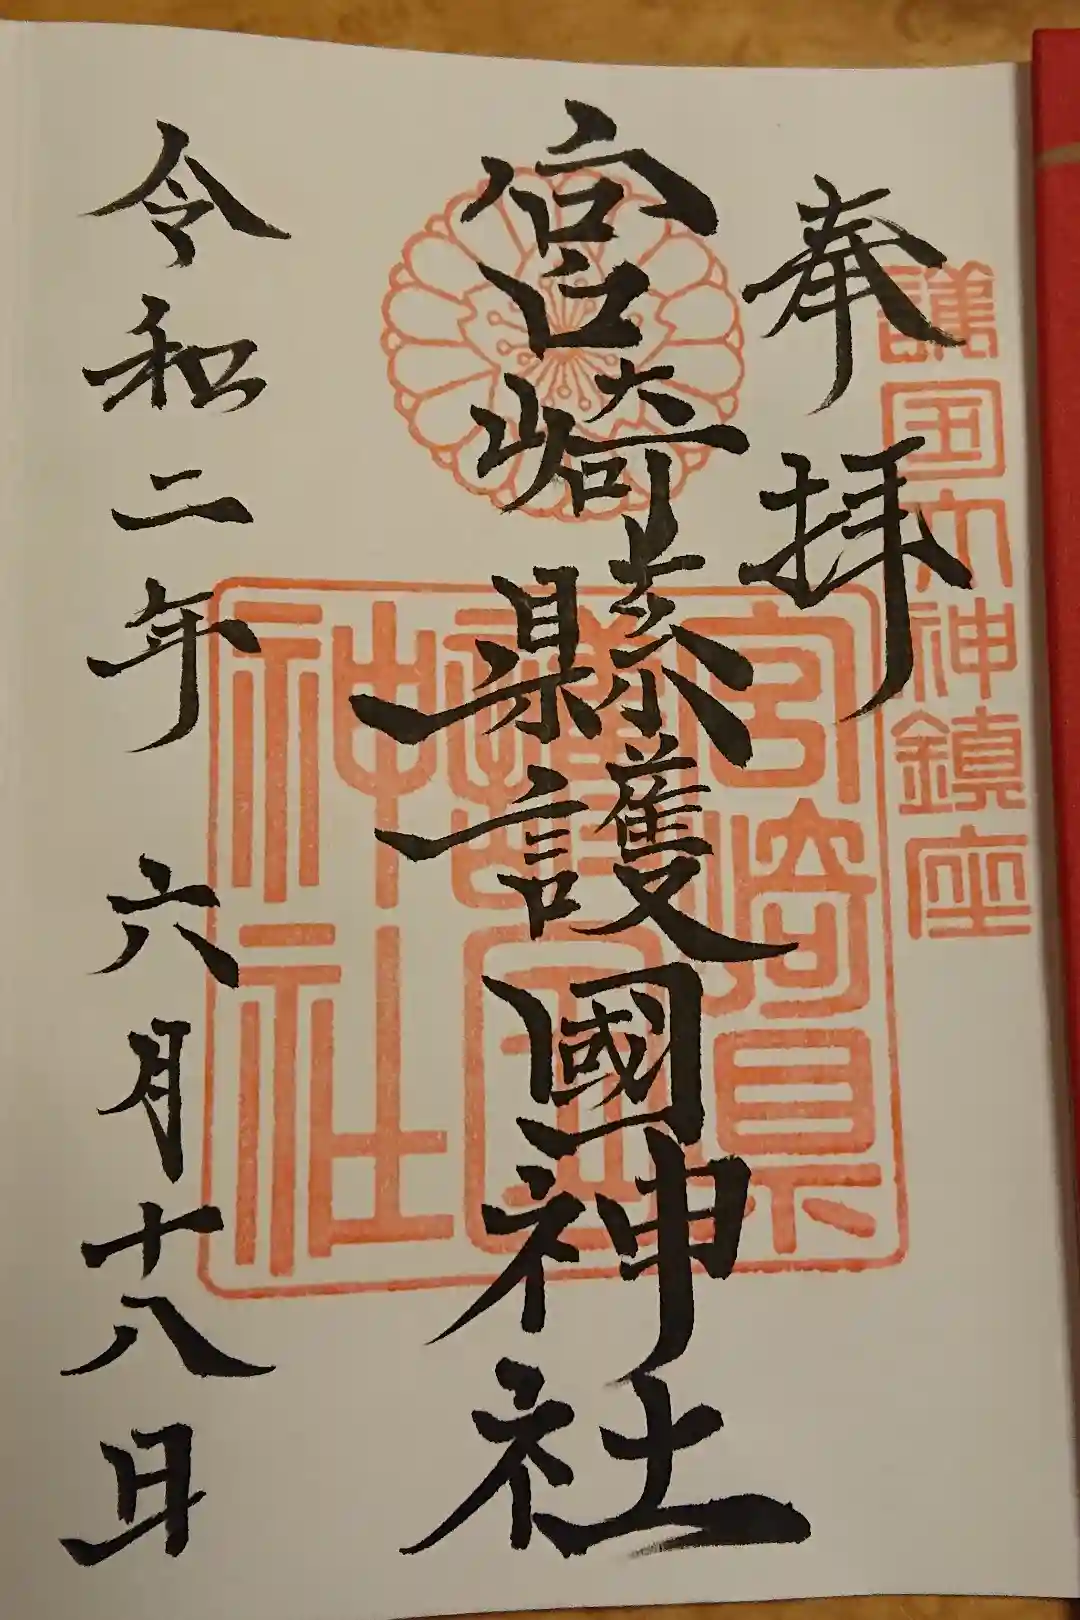 護国大神鎮座
奉拝
宮崎縣護國神社
宮崎県
護国
神社
令和二年六月十八日